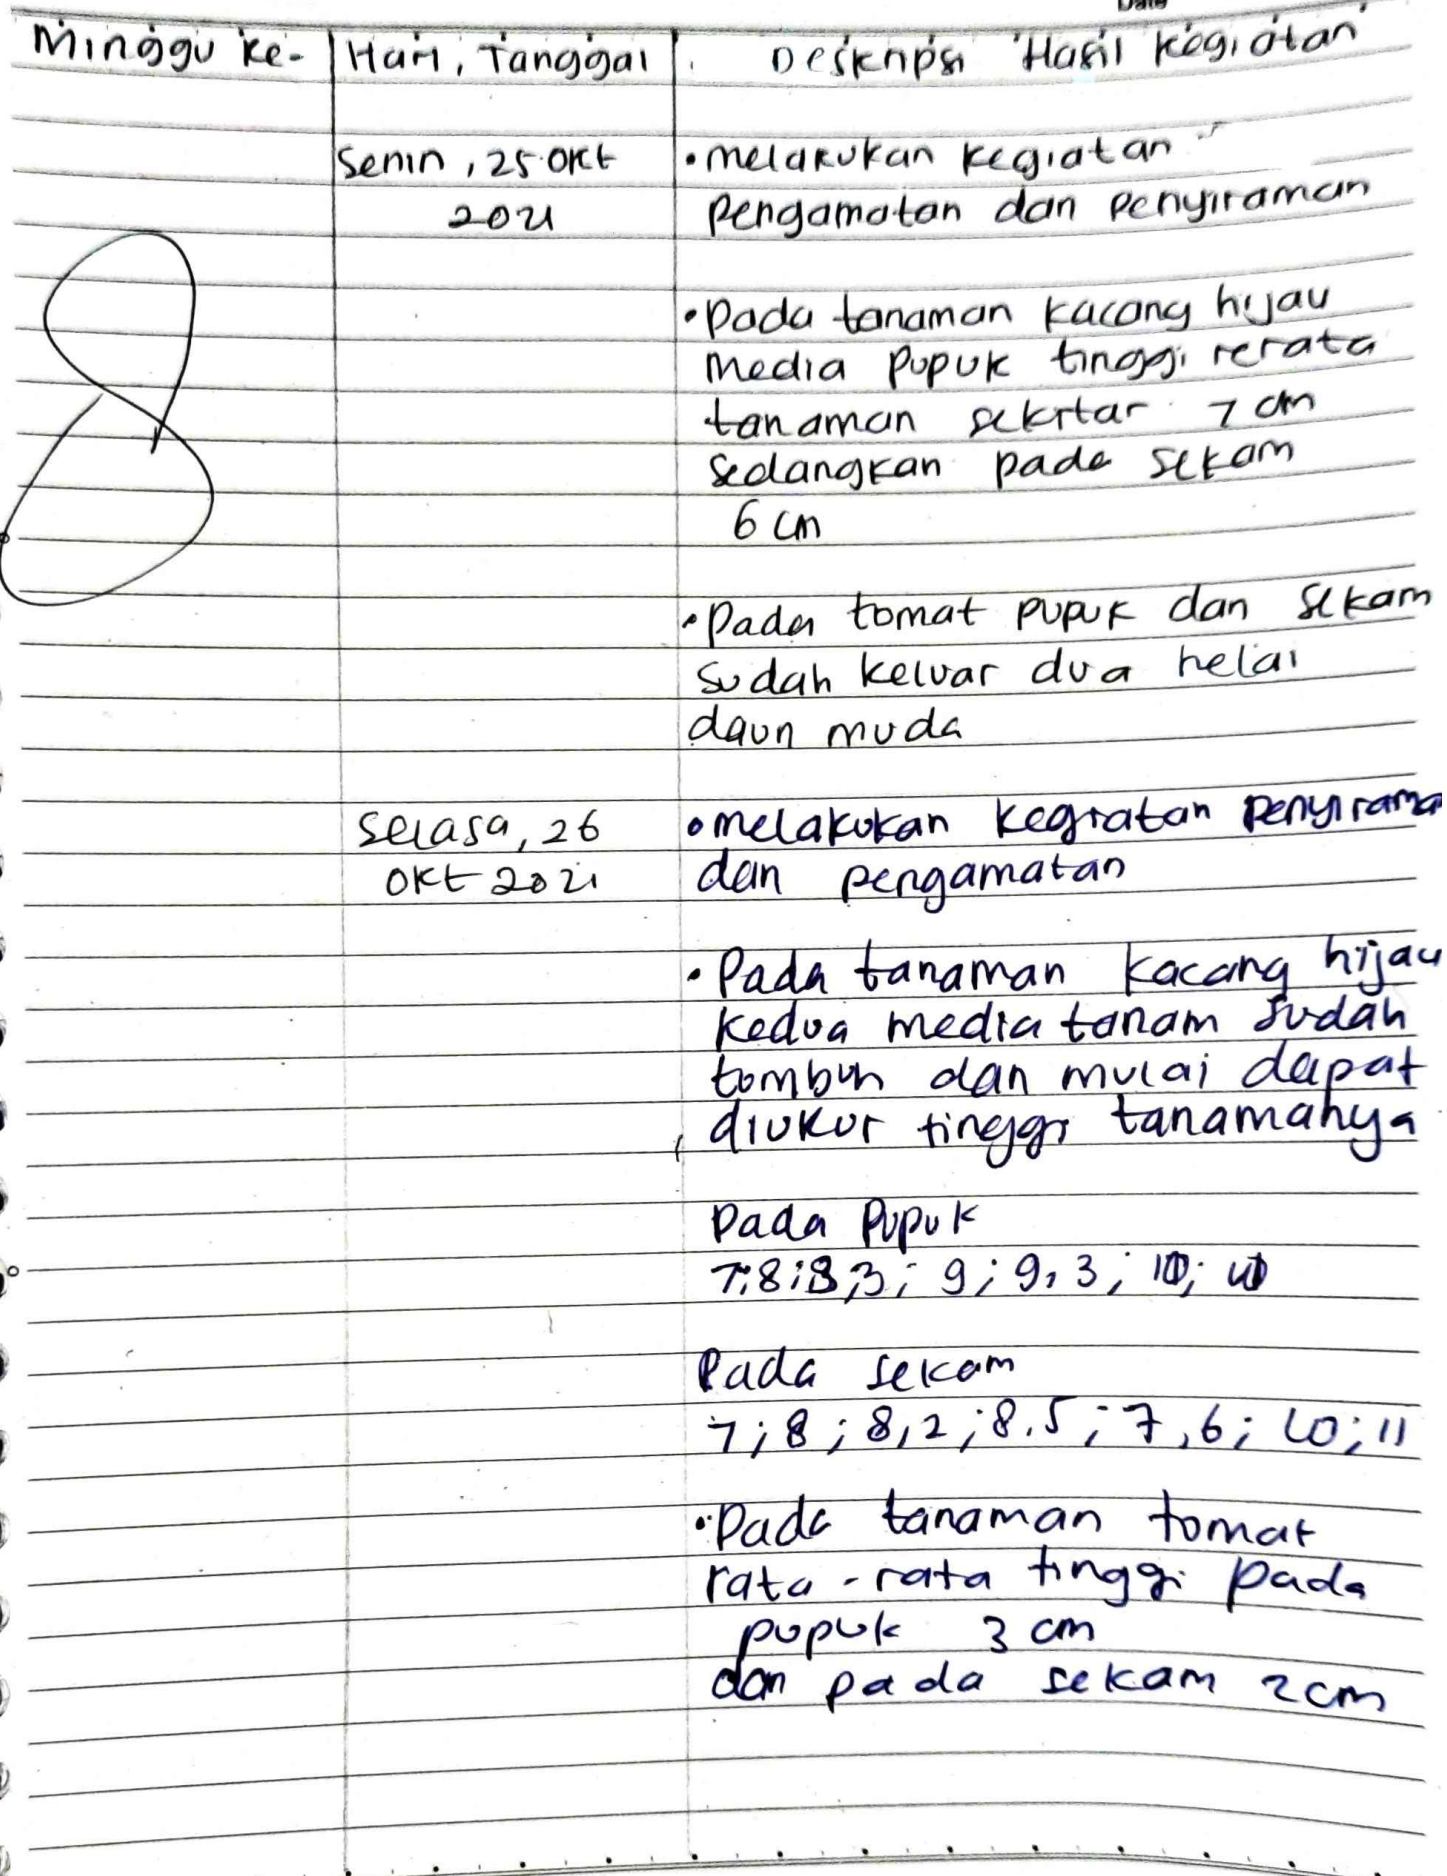 Date
Minggu ke- Hari, Tanggal Deskripsi Hasil kegiatan
8
Senin, 25 Okt • melakukan kegiatan
2021 pengamatan dan penyiraman
• Pada tanaman kacang hijau
media pupuk tinggi rerata
tanaman sekitar 7 cm
sedangkan pada sekam
6 cm
• Pada tomat pupuk dan sekam
sudah keluar dua helai
daun muda
Selasa, 26 • melakukan kegiatan penyirama
Okt 2021 dan pengamatan
• Pada tanaman kacang hijau
kedua media tanam sudah
tumbuh dan mulai dapat
diukur tinggi tanamanya
Pada Pupuk
7;8;8,3; 9; 9,3; 10;
Pada sekam
7; 8; 8,2; 8,5; 7,6; 10; 11
• Pada tanaman tomat
rata-rata tinggi pada
pupuk 3 cm
dan pada sekam 2 cm